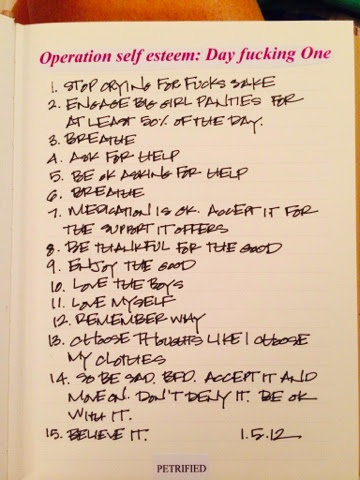 Operation self esteem: Day fucking One
1. STOP CRYING FOR FUCKS SAKE
2. ENGAGE BIG GIRL PANTIES FOR
AT LEAST 50% OF THE DAY.
3. BREATHE
4. ASK FOR HELP
5. BE OK ASKING FOR HELP
6. BREATHE
7. MEDICATION IS OK. ACCEPT IT FOR
THE SUPPORT IT OFFERS
8. BE THANKFUL FOR THE GOOD
9. ENJOY THE GOOD
10. LOVE THE BOYS
11. LOVE MYSELF
12. REMEMBER WHY
13. CHOOSE THOUGHTS LIKE I CHOOSE
MY CLOTHES
14. SO BE SAD. BFD. ACCEPT IT AND
MOVE ON. DON'T DENY IT. BE OK
WITH IT.
15. BELIEVE IT. 1.5.12
PETRIFIED